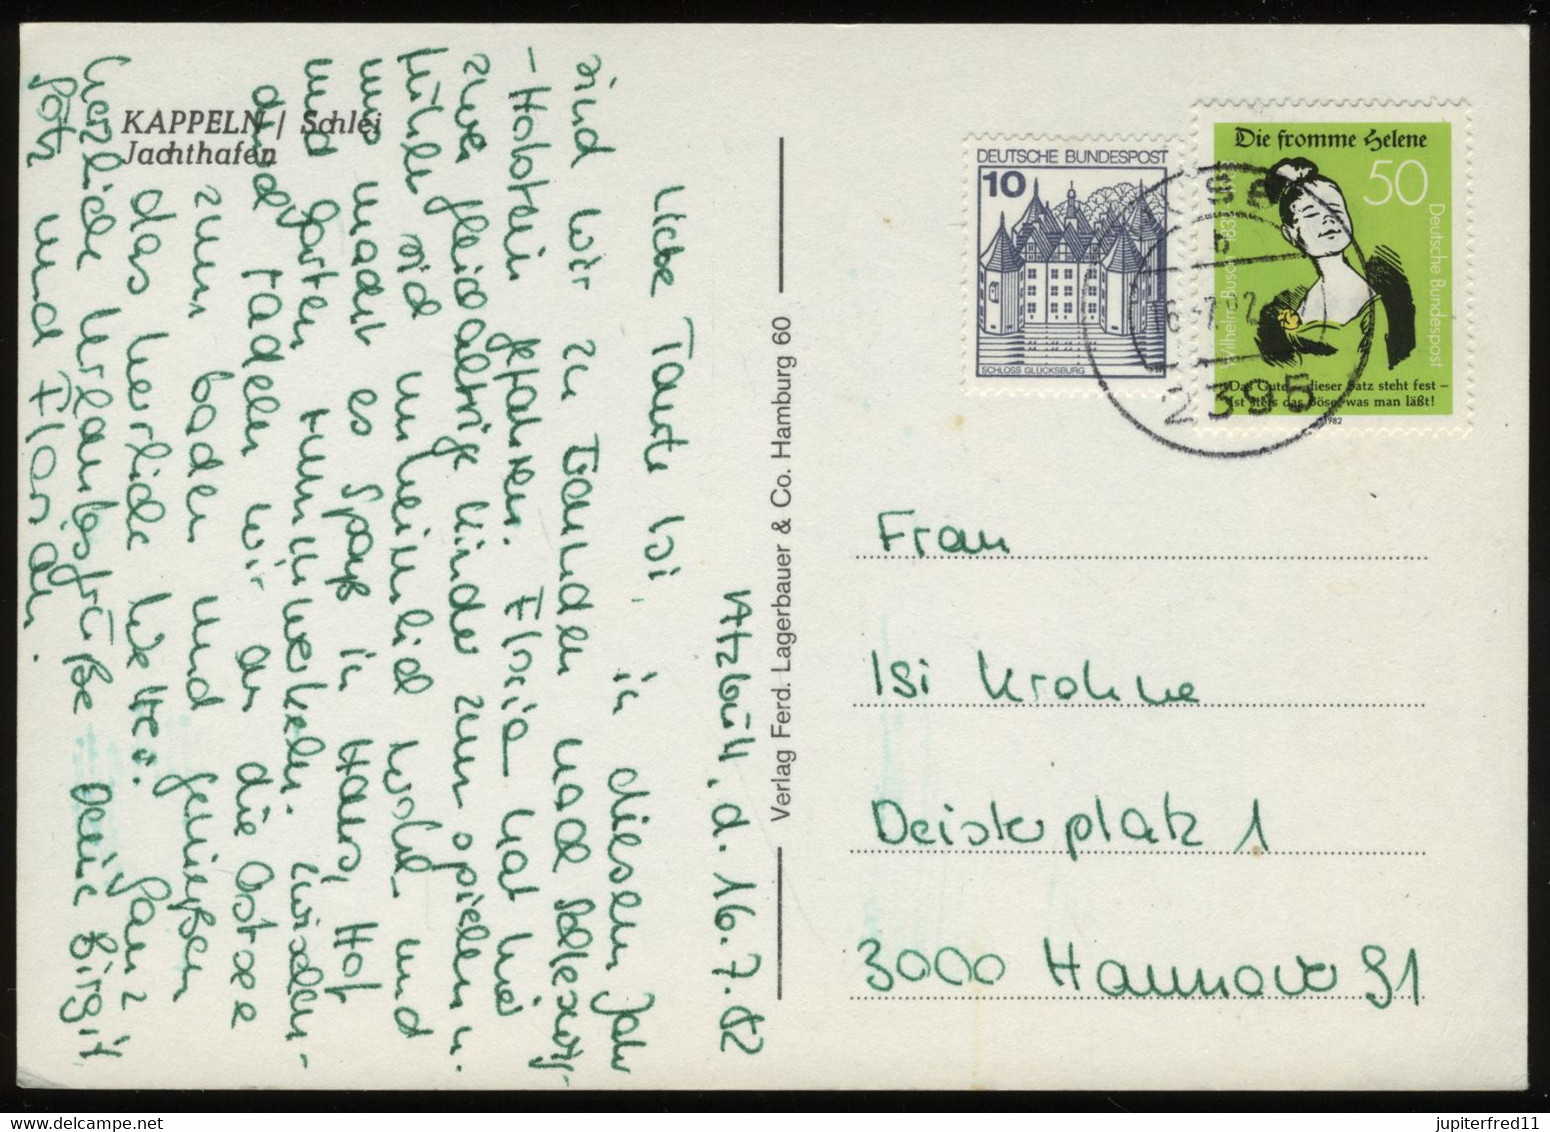 KAPPELN / Schlei
Jachthafen
Atzbüll, d. 16.7.82
Liebe Tante Isi,
in diesem Jahr
sind wir zu Freunden nach Schleswig-
-Holstein gefahren. Floria hat hier
zwei gleichaltrige Kinder zum spielen u.
fühlt sich unheimlich wohl und
uns macht es Spaß in Haus, Hof
und Garten rumzuwerkeln. Zwischen-
durch radeln wir an die Ostsee
zum baden und genießen
das herrliche Wetter. Ganz
herzliche Urlaubsgrüße Deine Birgit
Götz und Florian.
Verlag Ferd. Lagerbauer & Co. Hamburg 60
DEUTSCHE BUNDESPOST
10
SCHLOSS GLÜCKSBURG
Die fromme Helene
50
Deutsche Bundespost
Wilhelm Busch 1832
Das Gute – dieser Satz steht fest –
ist stets das Böse, was man läßt!
1982
2395
Frau
Isi Krohne
Deisterplatz 1
3000 Hannover 91
jupiterfred11